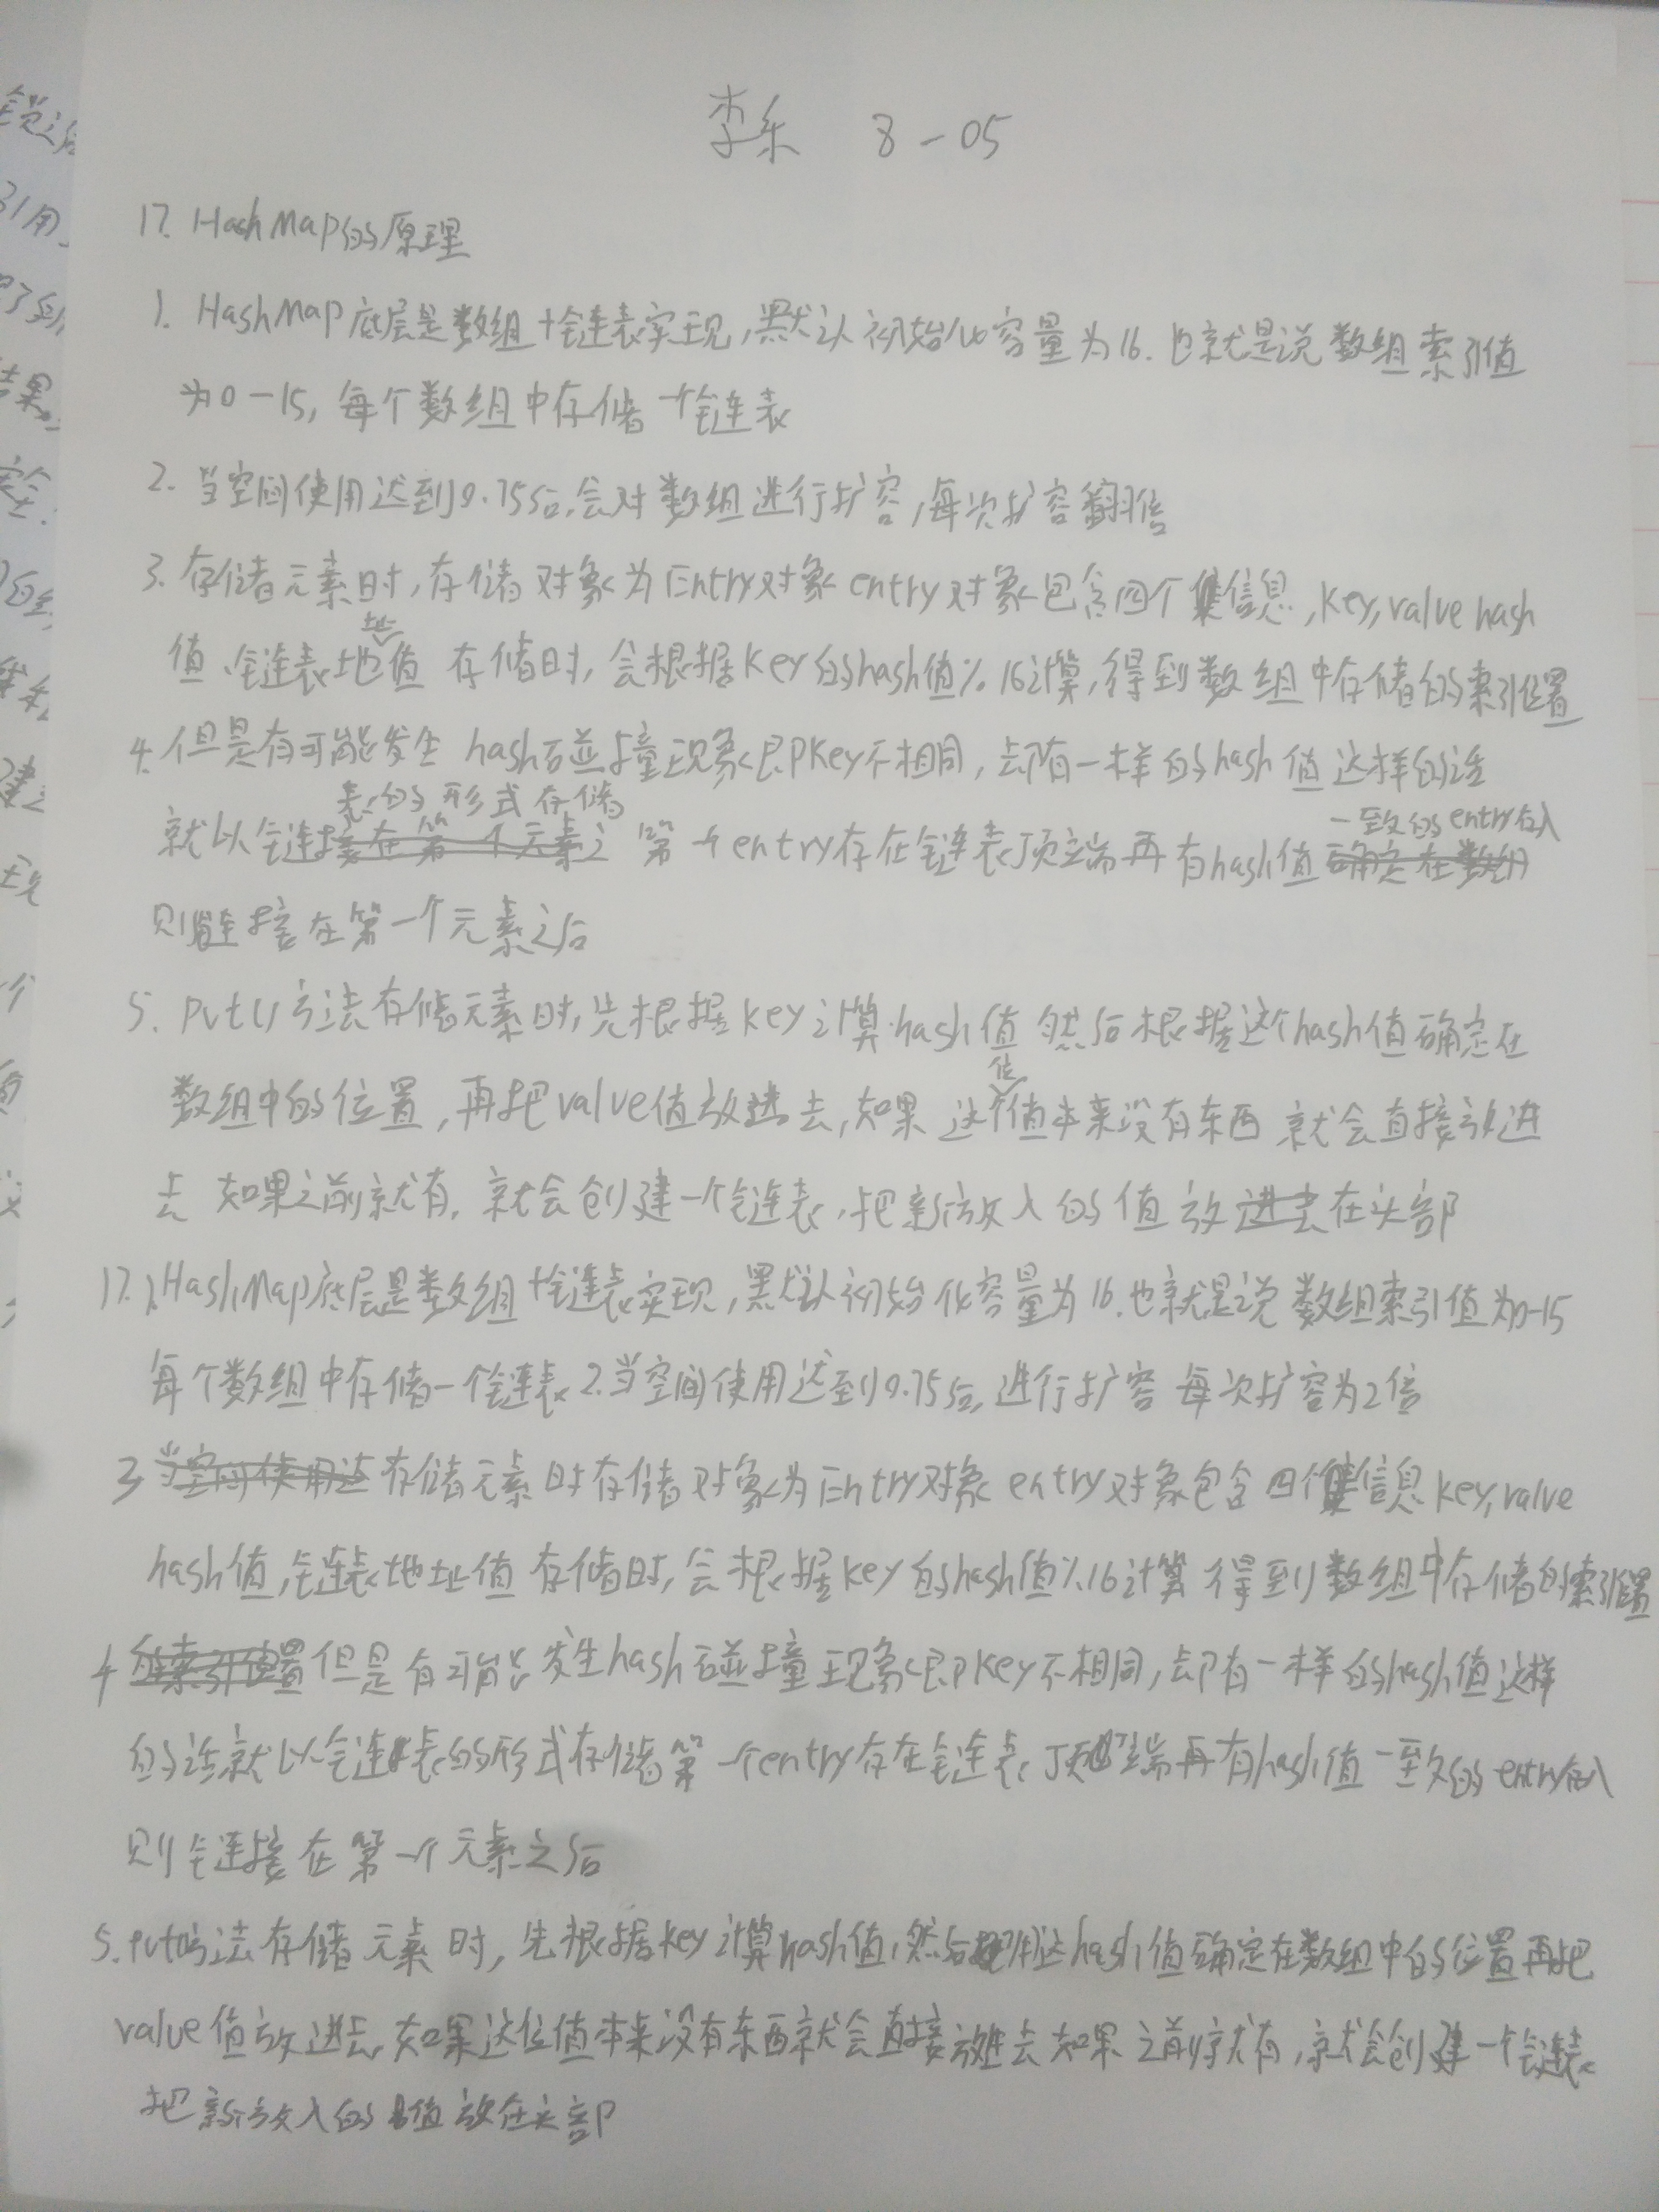 李乐 8-05
17. HashMap的原理
1. HashMap底层是数组+链表实现,默认初始化容量为16.也就是说数组索引值
为0-15,每个数组中存储一个链表
2. 当空间使用达到0.75后,会对数组进行扩容,每次扩容翻倍
3. 存储元素时,存储对象为Entry对象 entry对象包含四个信息,key,value hash
值、链表地址值 存储时,会根据key的hash值%16计算,得到数组中存储的索引位置
4. 但是有可能发生 hash碰撞现象即key不相同,却有一样的hash值 这样的话
就以链表的形式存储 第一个entry存在链表顶端再有hash值一致的entry存入
则链接在第一个元素之后
5. Put()方法存储元素时,先根据key计算hash值 然后根据这个hash值确定在
数组中的位置,再把value值放进去,如果 这个位值本来没有东西 就会直接放进
去 如果之前就有,就会创建一个链表,把新放入的值放在头部
17.1.HashMap底层是数组+链表实现,默认初始化容量为16.也就是说数组索引值为0-15
每个数组中存储一个链表 2.当空间使用达到0.75后,进行扩容 每次扩容为2倍
3 存储元素时存储对象为Entry对象 entry对象包含四个信息key,value
hash值,链表地址值 存储时,会根据key的hash值%16计算 得到数组中存储的索引位置
4 但是有可能发生hash碰撞现象即key不相同,却有一样的hash值这样
的话就以链表的形式存储第一个entry存在链表顶端再有hash值一致的entry存入
则链接在第一个元素之后
5.put方法存储元素时,先根据key计算hash值,然后用这hash值确定在数组中的位置再把
value值放进去,如果这位值本来没有东西就会直接放进去如果之前就有,就会创建一个链表
把新放入的值放在头部